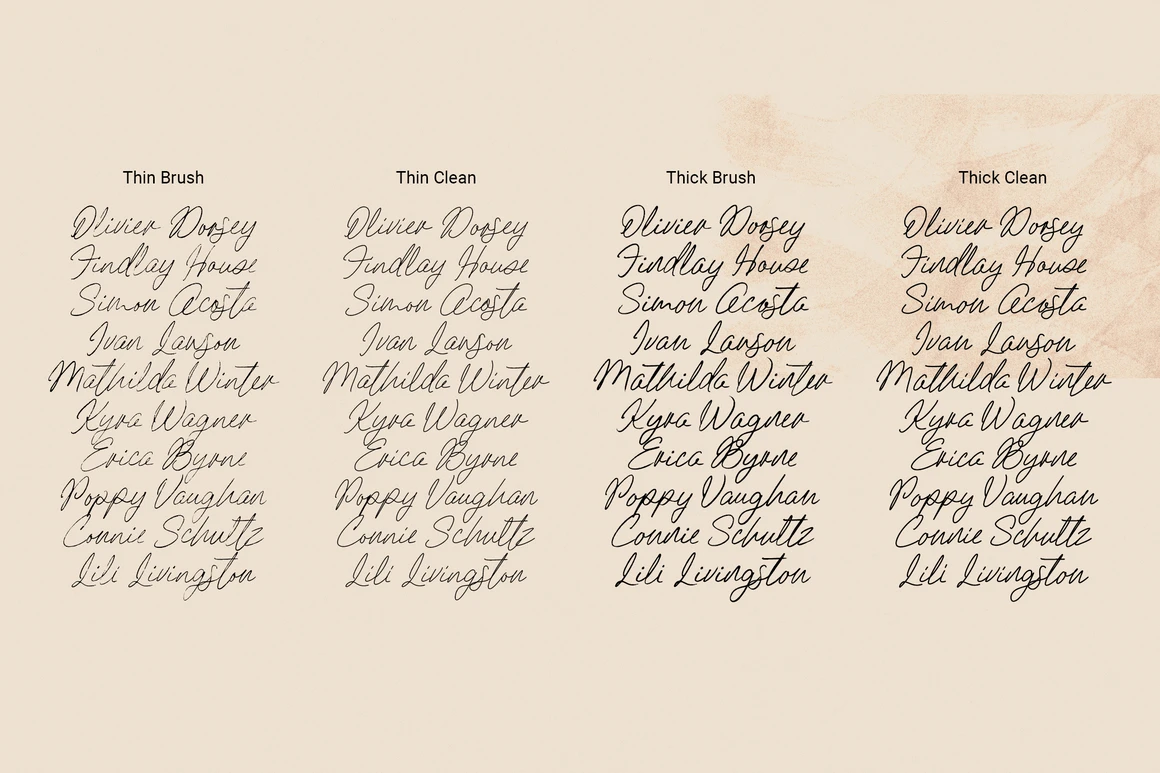 Thin Brush
Olivier Dorsey
Findlay House
Simon Acosta
Ivan Lawson
Mathilda Winter
Kyra Wagner
Erica Byrne
Poppy Vaughan
Connie Schultz
Lili Livingston
Thin Clean
Olivier Dorsey
Findlay House
Simon Acosta
Ivan Lawson
Mathilda Winter
Kyra Wagner
Erica Byrne
Poppy Vaughan
Connie Schultz
Lili Livingston
Thick Brush
Olivier Dorsey
Findlay House
Simon Acosta
Ivan Lawson
Mathilda Winter
Kyra Wagner
Erica Byrne
Poppy Vaughan
Connie Schultz
Lili Livingston
Thick Clean
Olivier Dorsey
Findlay House
Simon Acosta
Ivan Lawson
Mathilda Winter
Kyra Wagner
Erica Byrne
Poppy Vaughan
Connie Schultz
Lili Livingston